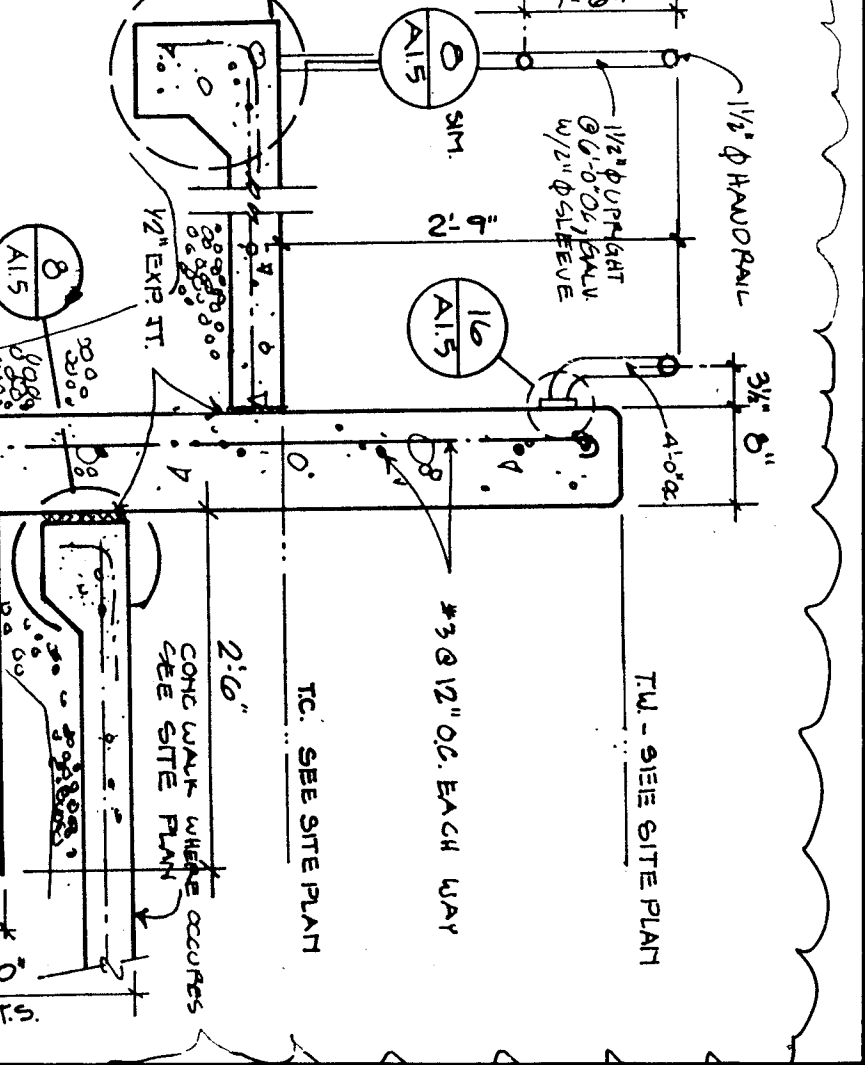 1½" φ HANDRAIL
1½" φ UPRIGHT
@ 6'-0" OC, GALV.
W/2" φ SLEEVE
8
A1.5
SIM.
2'-9"
16
A1.5
3½"
8"
4'-0" OC.
½" EXP. JT.
8
A1.5
T.W. - SEE SITE PLAN
#3 @ 12" O.C. EACH WAY
T.C. SEE SITE PLAN
2'-6"
CONC WALK WHERE OCCURES
SEE SITE PLAN
0"
T.S.